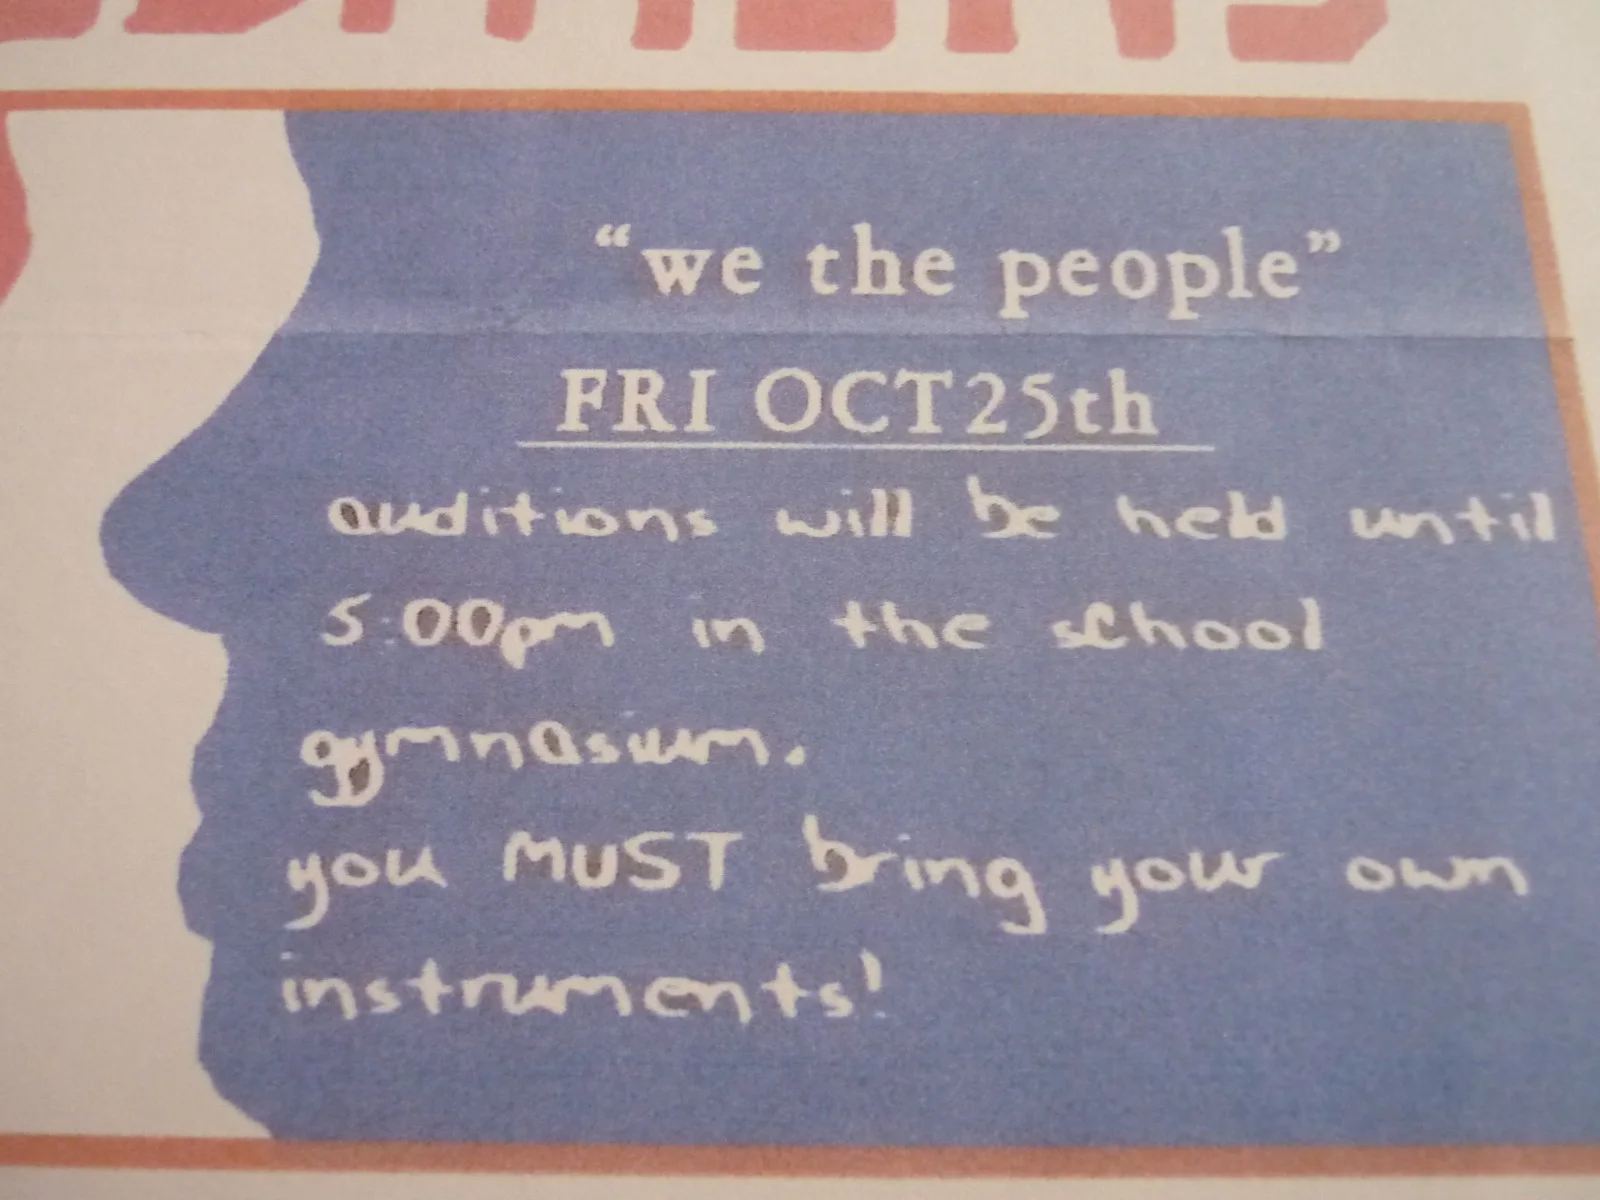 "we the people"
FRI OCT 25th
auditions will be held until
5:00pm in the school
gymnasium.
you MUST bring your own
instruments!